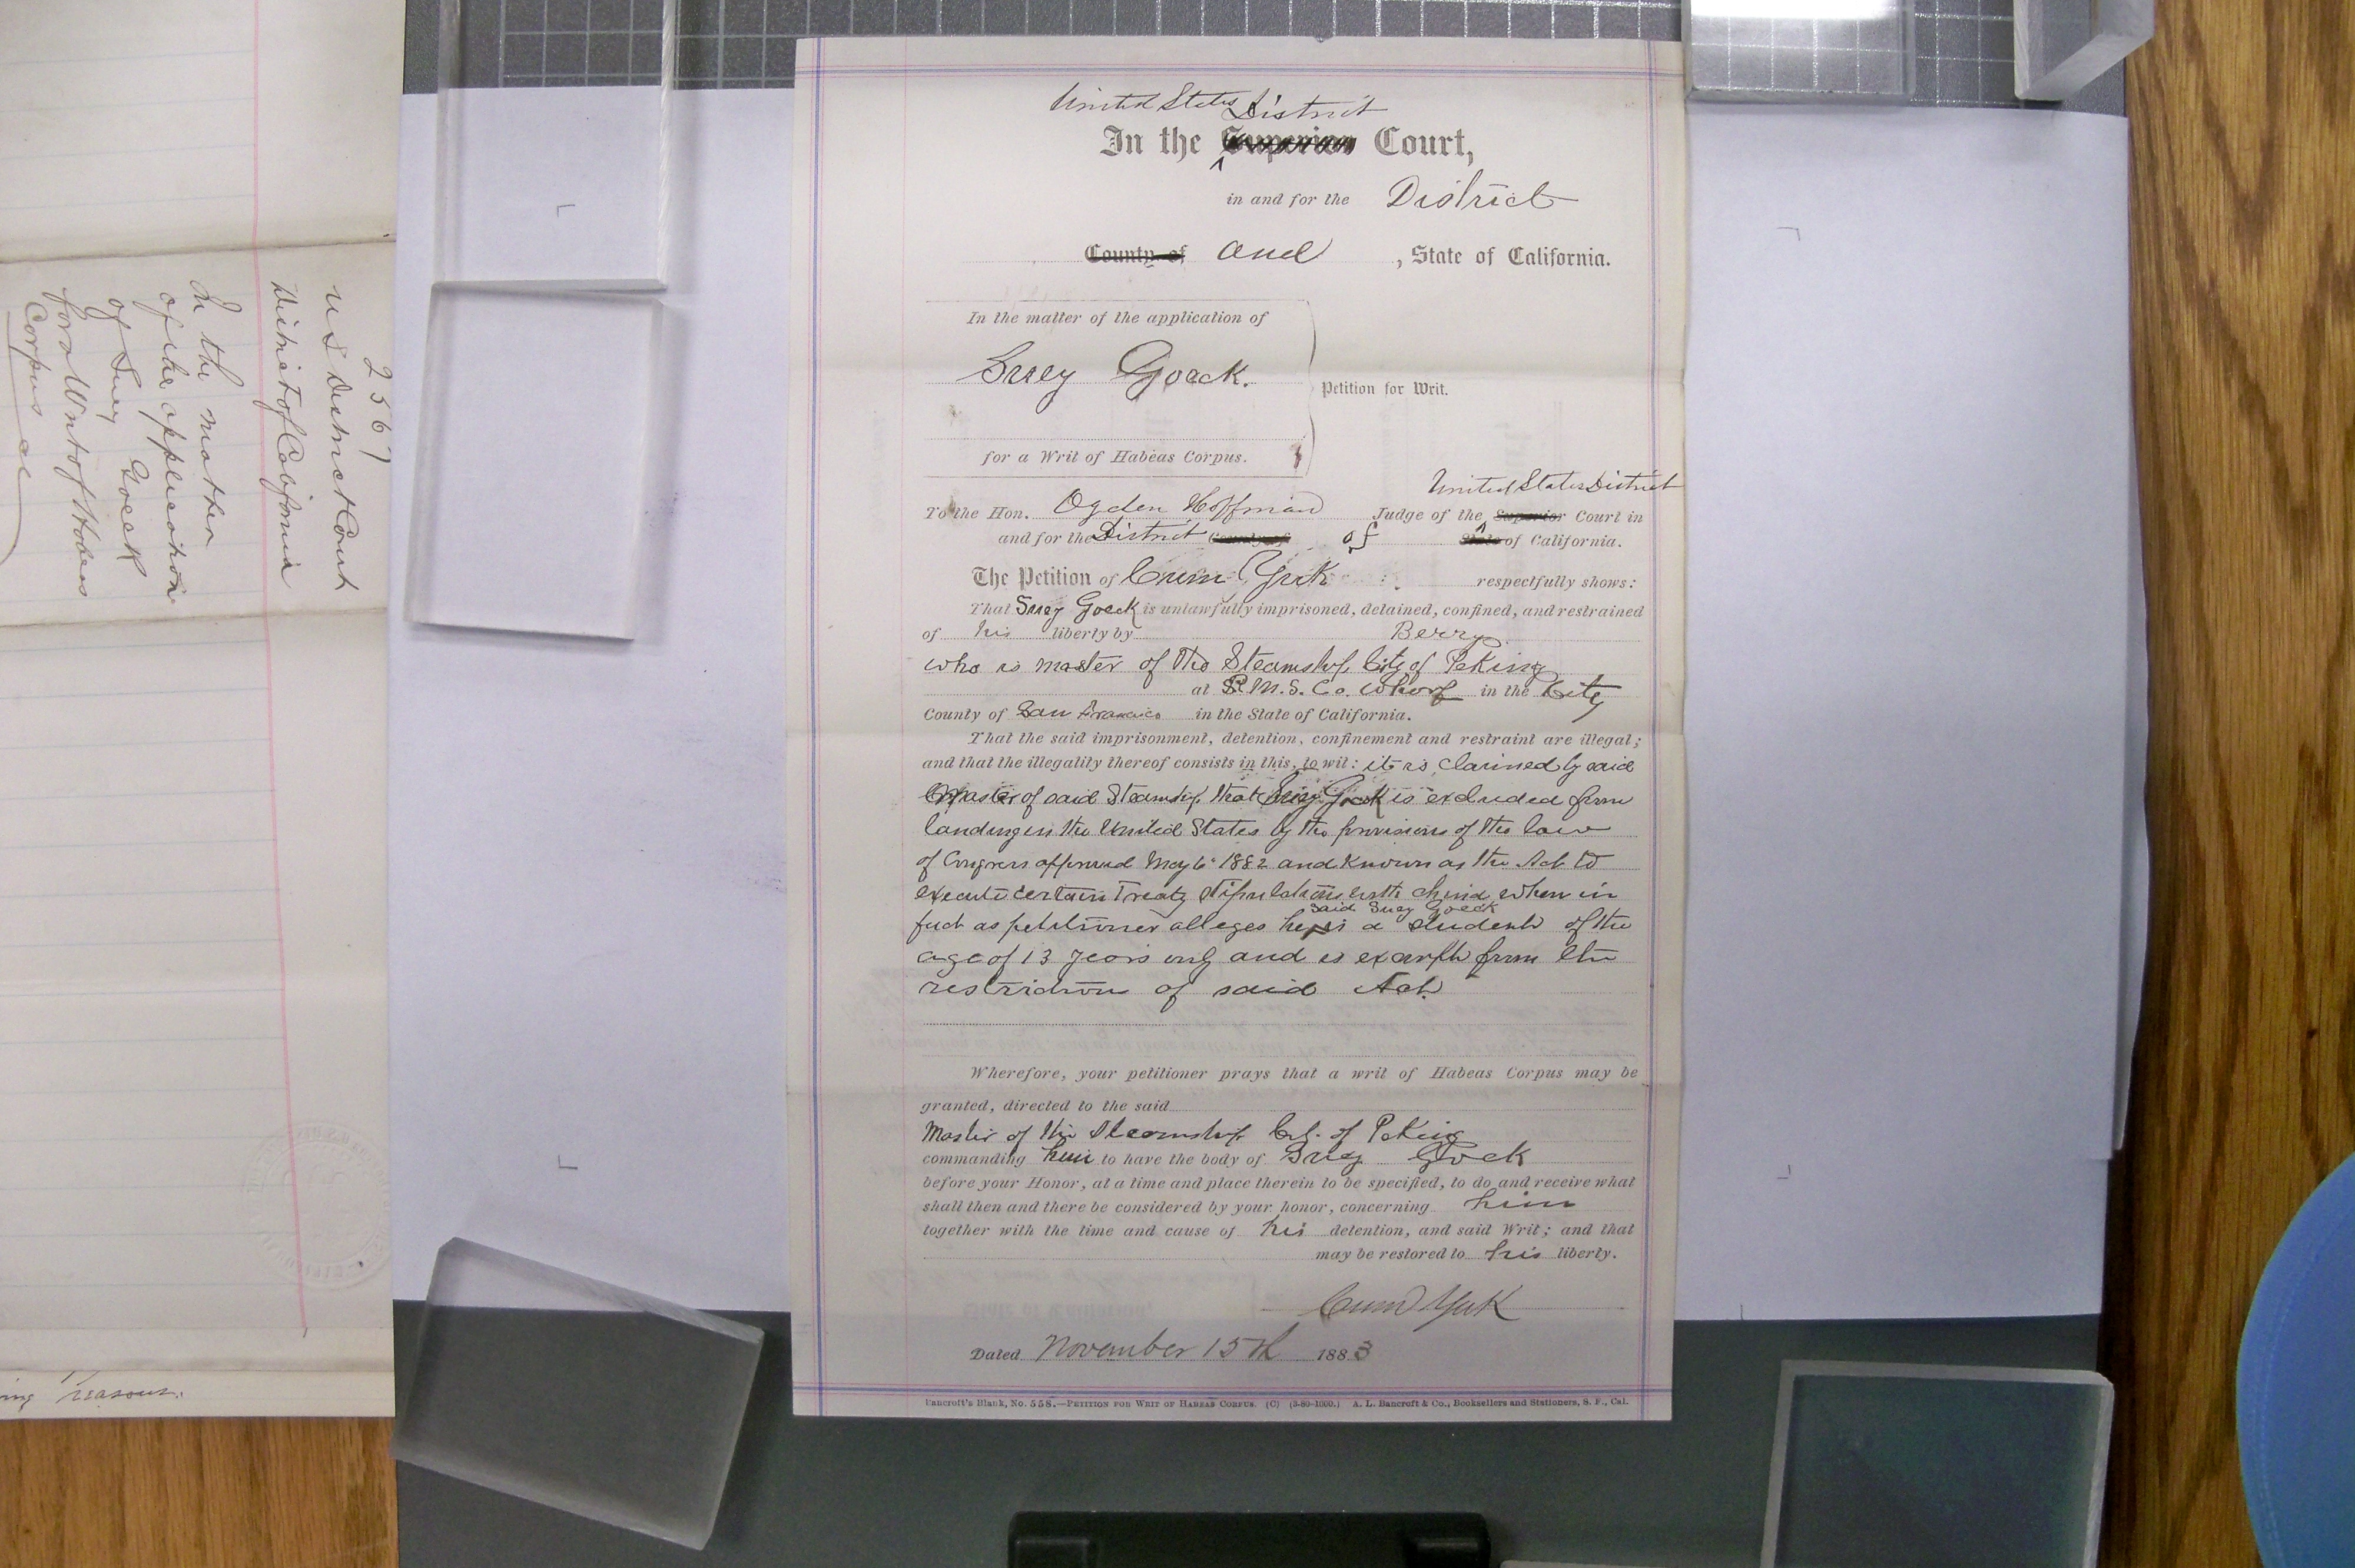 United States District
In the Superior Court,
in and for the District
County of and , State of California.
In the matter of the application of
Suey Goeck.
Petition for Writ.
for a Writ of Habeas Corpus.
United States District
To the Hon. Ogden Hoffman Judge of the Superior Court in
and for the District County of of State of California.
The Petition of respectfully shows:
That Suey Goeck is unlawfully imprisoned, detained, confined, and restrained
of his liberty by Berry
who is master of the Steamship City of Peking
at P.M.S. Co. Wharf in the City
County of San Francisco in the State of California.
That the said imprisonment, detention, confinement and restraint are illegal;
and that the illegality thereof consists in this, to wit: it is claimed by said
Master of said Steamship that Suey Goeck is excluded from
landing in the United States by the provisions of the law
of Congress approved May 6" 1882 and known as the Act to
execute certain Treaty stipulations with China when in
said Suey Goeck
fact as petitioner alleges he is a student of the
age of 13 years only and is exempt from the
restriction of said Act.
Wherefore, your petitioner prays that a writ of Habeas Corpus may be
granted, directed to the said
Master of the Steamship City of Peking
commanding him to have the body of Suey Goeck
before your Honor, at a time and place therein to be specified, to do and receive what
shall then and there be considered by your honor, concerning him
together with the time and cause of his detention, and said Writ; and that
may be restored to his liberty.
Dated November 15th 1883
Bancroft's Blank, No. 558.—Petition for Writ of Habeas Corpus. (C) (3-80-1000.) A. L. Bancroft & Co., Booksellers and Stationers, S. F., Cal.
2567
U S District Court
District of California
In the matter
of the application
of Suey Goeck
for a Writ of Habeas
Corpus